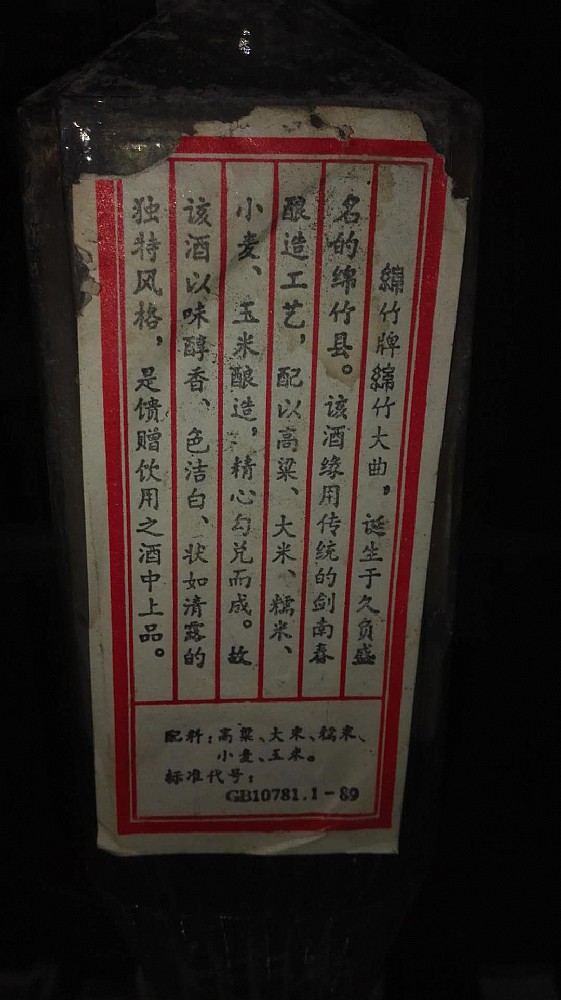 綿竹牌綿竹大曲，诞生于久负盛
名的绵竹县。该酒缘用传统的剑南春
酿造工艺，配以高粱、大米、糯米、
小麦、玉米酿造，精心勾兑而成。故
该酒以味醇香、色洁白、状如清露的
独特风格，是馈赠饮用之酒中上品。
配料：高粱、大米、糯米、
小麦、玉米。
标准代号：
GB10781.1-89